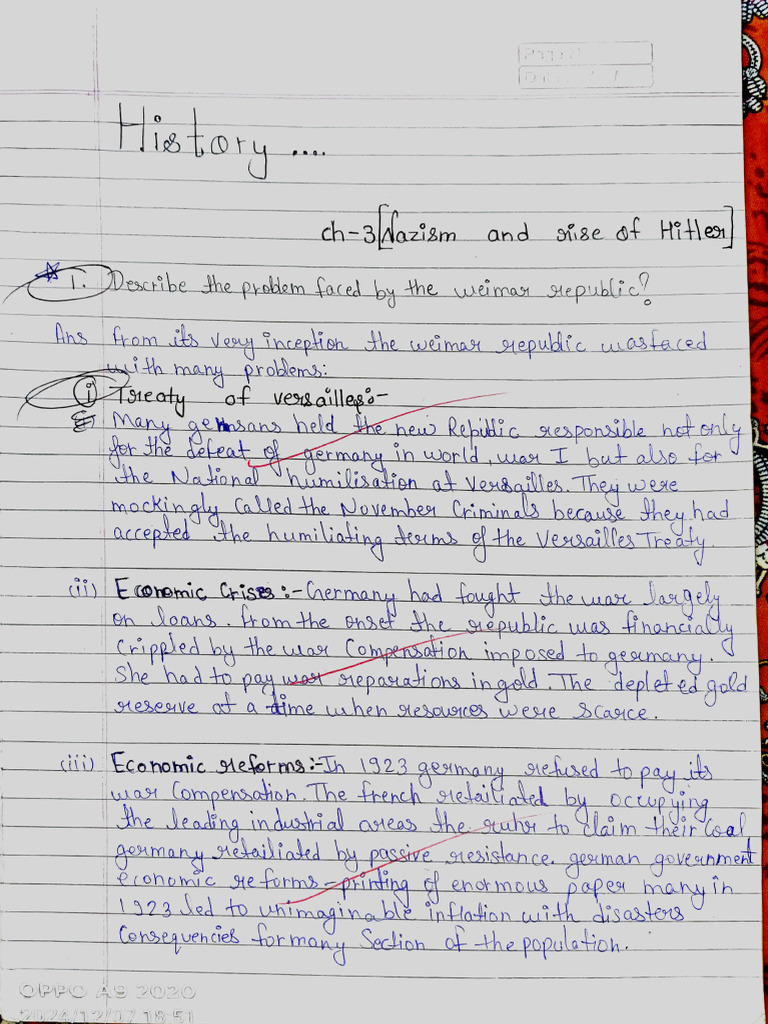 History ....
ch-3 [Nazism and rise of Hitler]
1. Describe the problem faced by the weimar republic?
Ans from its very inception the weimar republic was faced
with many problems:
(i) Treaty of versailles:-
Many germans held the new Republic responsible not only
for the defeat of germany in world, war I but also for
the National humilisation at versailles. They were
mockingly called the November Criminals because they had
accepted the humiliating terms of the Versailles Treaty.
(ii) Economic Crises:- Germany had fought the war largely
on loans. from the onset the republic was financially
crippled by the war Compensation imposed to germany.
She had to pay war reparations in gold. The depleted gold
reserve at a time when resources were scarce.
(iii) Economic reforms:- In 1923 germany refused to pay its
war Compensation. The french retailiated by occupying
the leading industrial areas the ruhr to claim their Coal
germany retailiated by passive resistance. german government
economic reforms - printing of enormous paper many in
1923 led to unimaginable inflation with disasters
Consequencies for many Section of the population.
OPPO A9 2020
2024/12/07 18:51